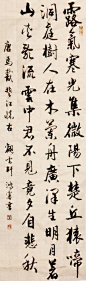 露氣寒光集微陽下楚丘猿啼
洞庭樹人在木蘭舟廣澤生明月蒼
山夾亂流雲中君不見竟夕自悲秋
唐馬戴楚江懷古